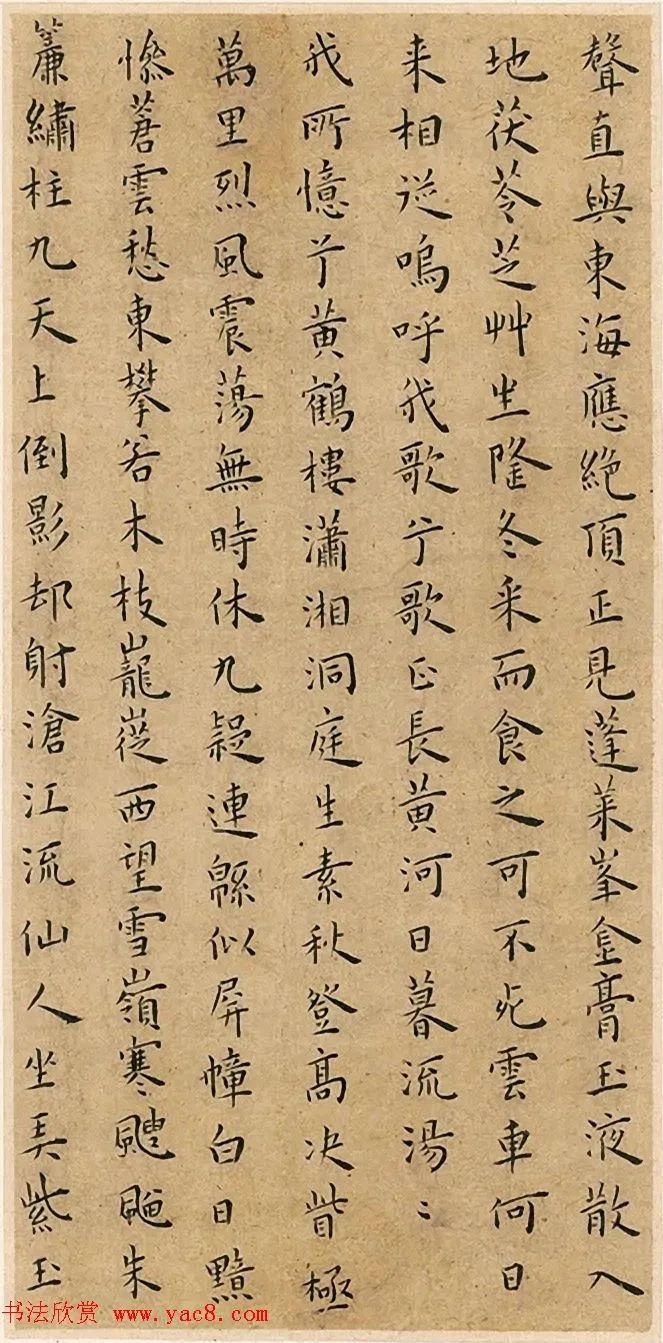 聲直與東海應絕頂正見蓬萊峯金膏玉液散入
地茯苓芝艸生隆冬采而食之可不死雲車何日
来相從嗚呼我歌兮歌正長黃河日暮流湯〻
我所憶兮黃鶴樓瀟湘洞庭生素秋登高決眥極
萬里烈風震蕩無時休九疑連緜似屏幛白日黯
慘蒼雲愁東攀若木枝巃嵷西望雪嶺寒颼飀朱
簾繡柱九天上倒影却射滄江流仙人坐弄紫玉
书法欣赏 www.yac8.com